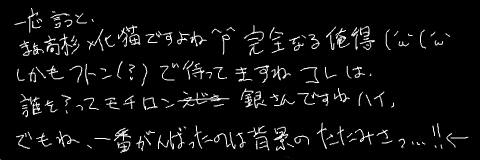 一応言っと、
まぁ高杉×化猫ですよね^p^ 完全なる俺得 (´ω`(´ω`
しかもフトン(?)で待ってますねコレは。
誰を?ってモチロン 銀さんですねハイ。
でもね、一番がんばったのは背景のたたみさっ…!!←